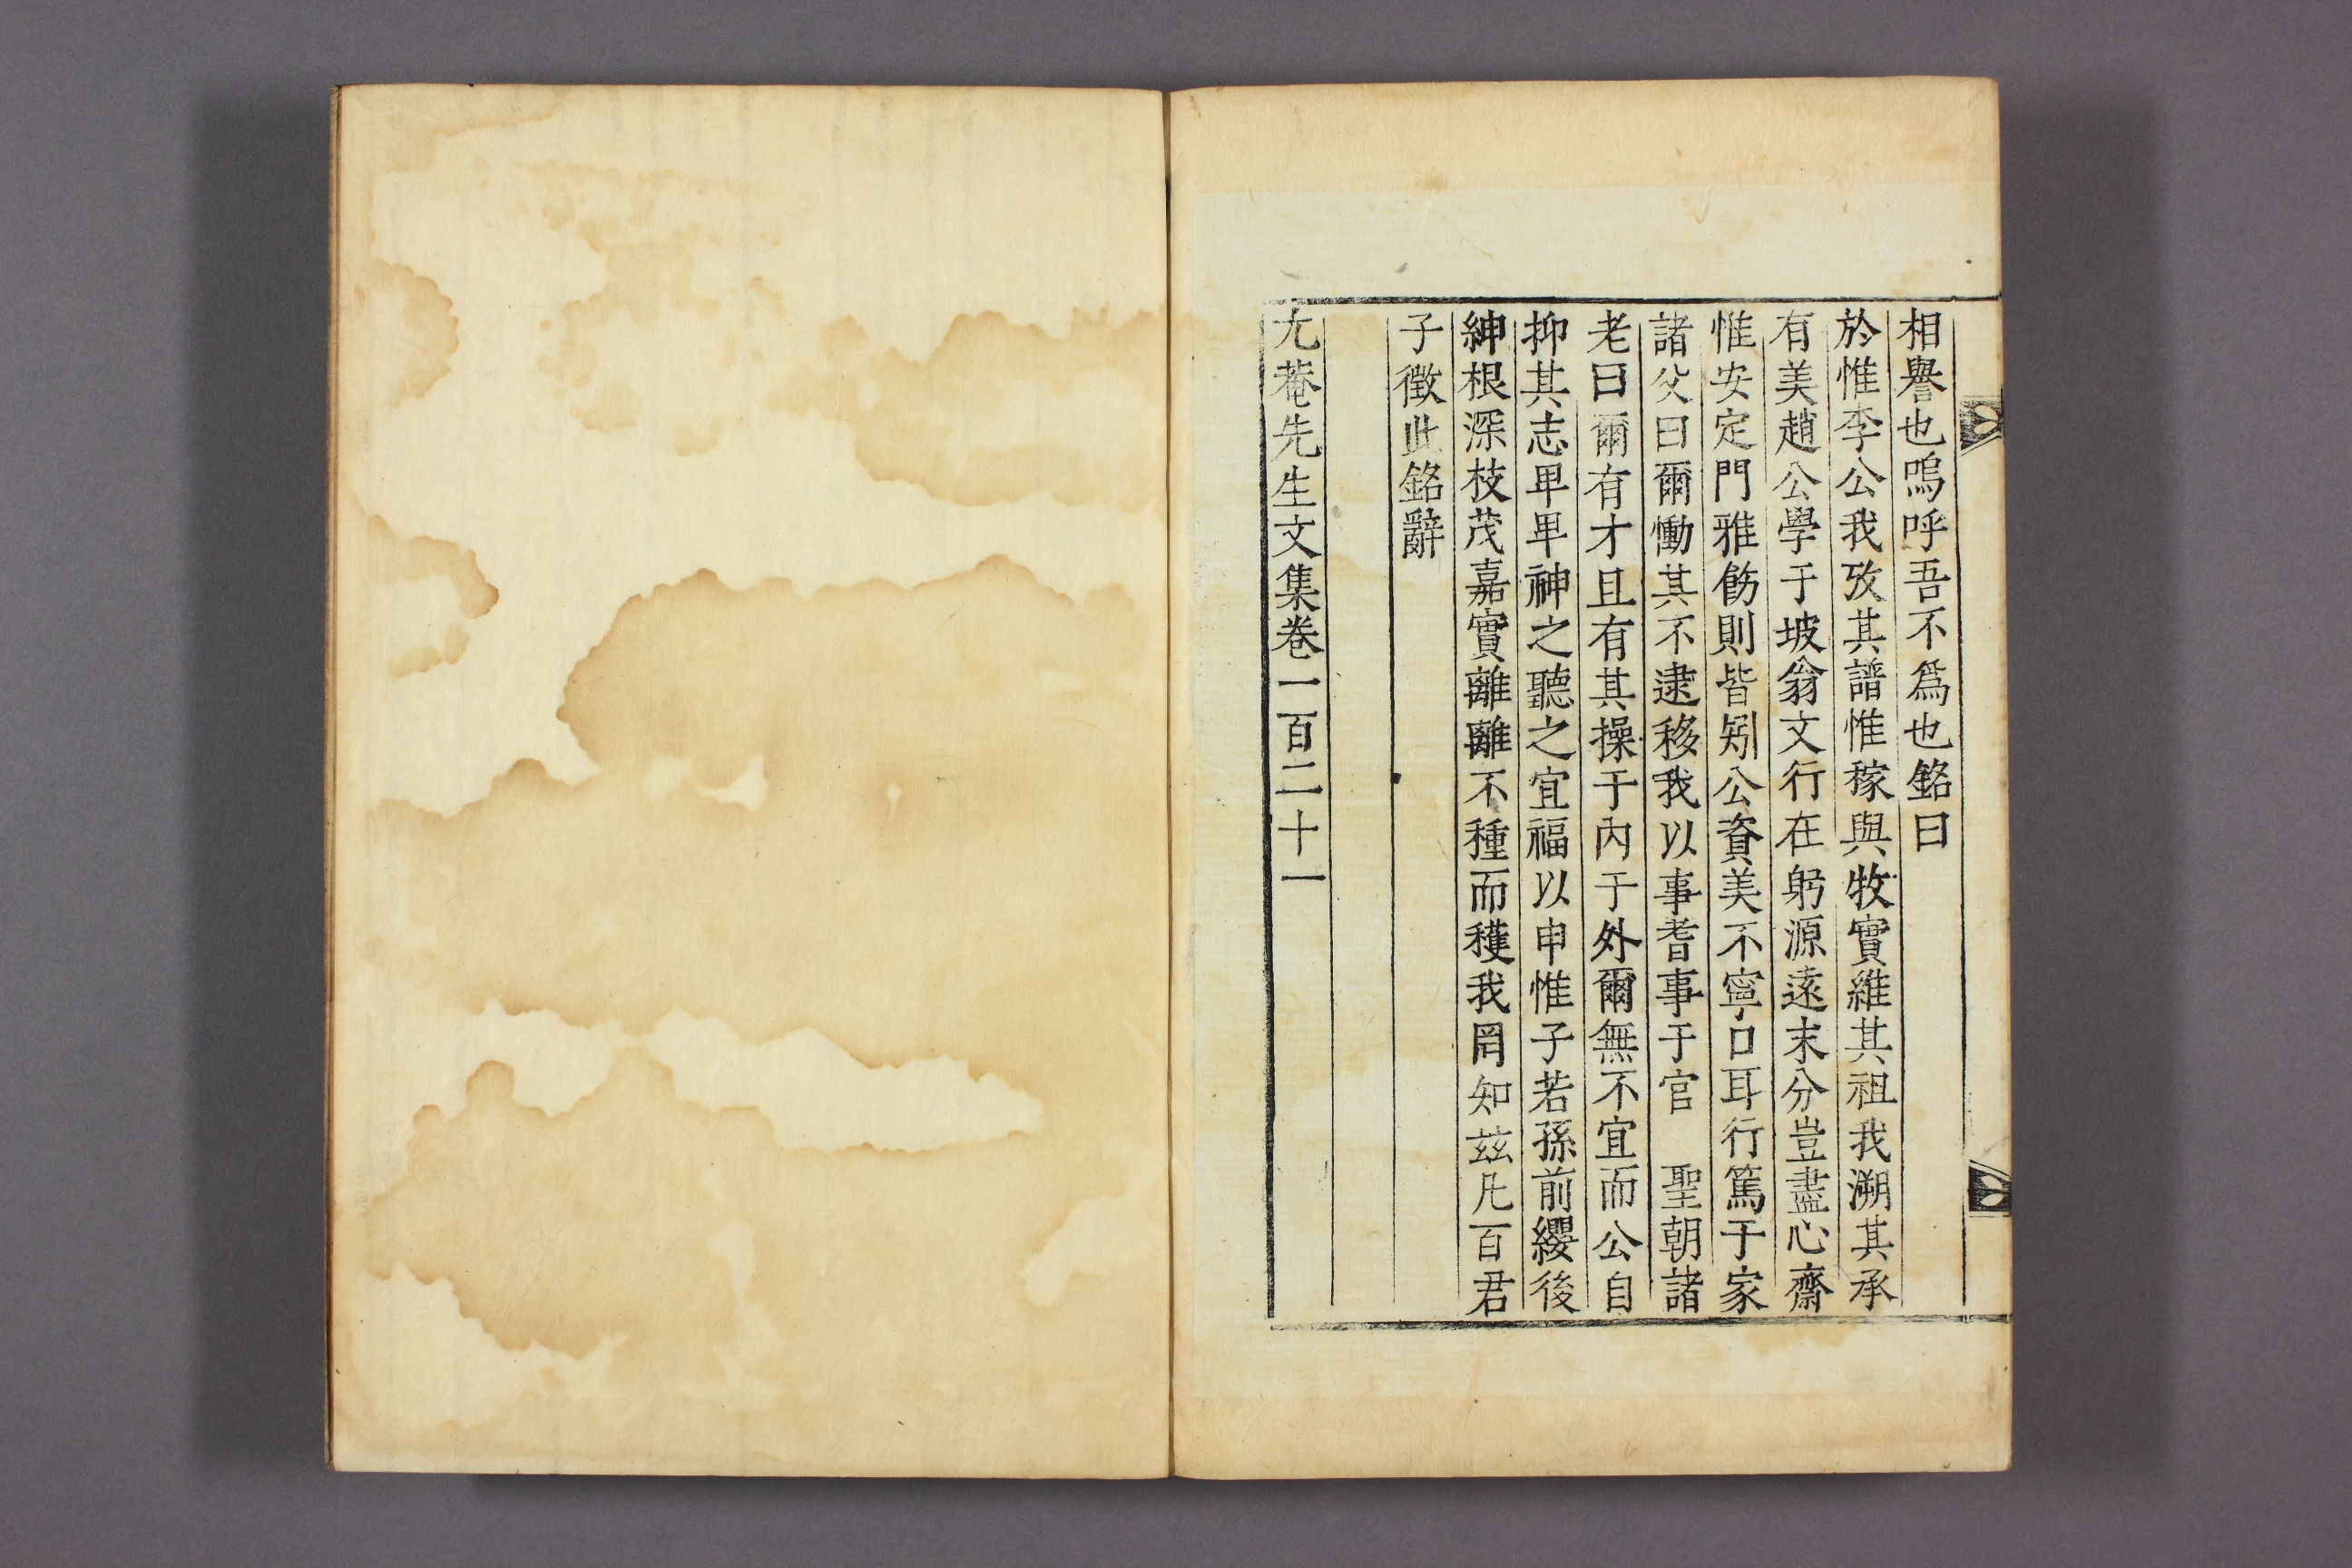 相譽也嗚呼吾不爲也銘曰
於惟李公我攷其譜惟稼與牧實維其祖我溯其承
有美趙公學于坡翁文行在躬源遠末分豈盡心齋
惟安定門雅飭則皆矧公資美不寧口耳行篤于家
諸父曰爾慟其不逮移我以事耆事于官　聖朝諸
老曰爾有才且有其操于內于外爾無不宜而公自
抑其志卑卑神之聽之宜福以申惟子若孫前纓後
紳根深枝茂嘉實離離不種而穫我罔知玆凡百君
子徵此銘辭
尤菴先生文集卷一百二十一